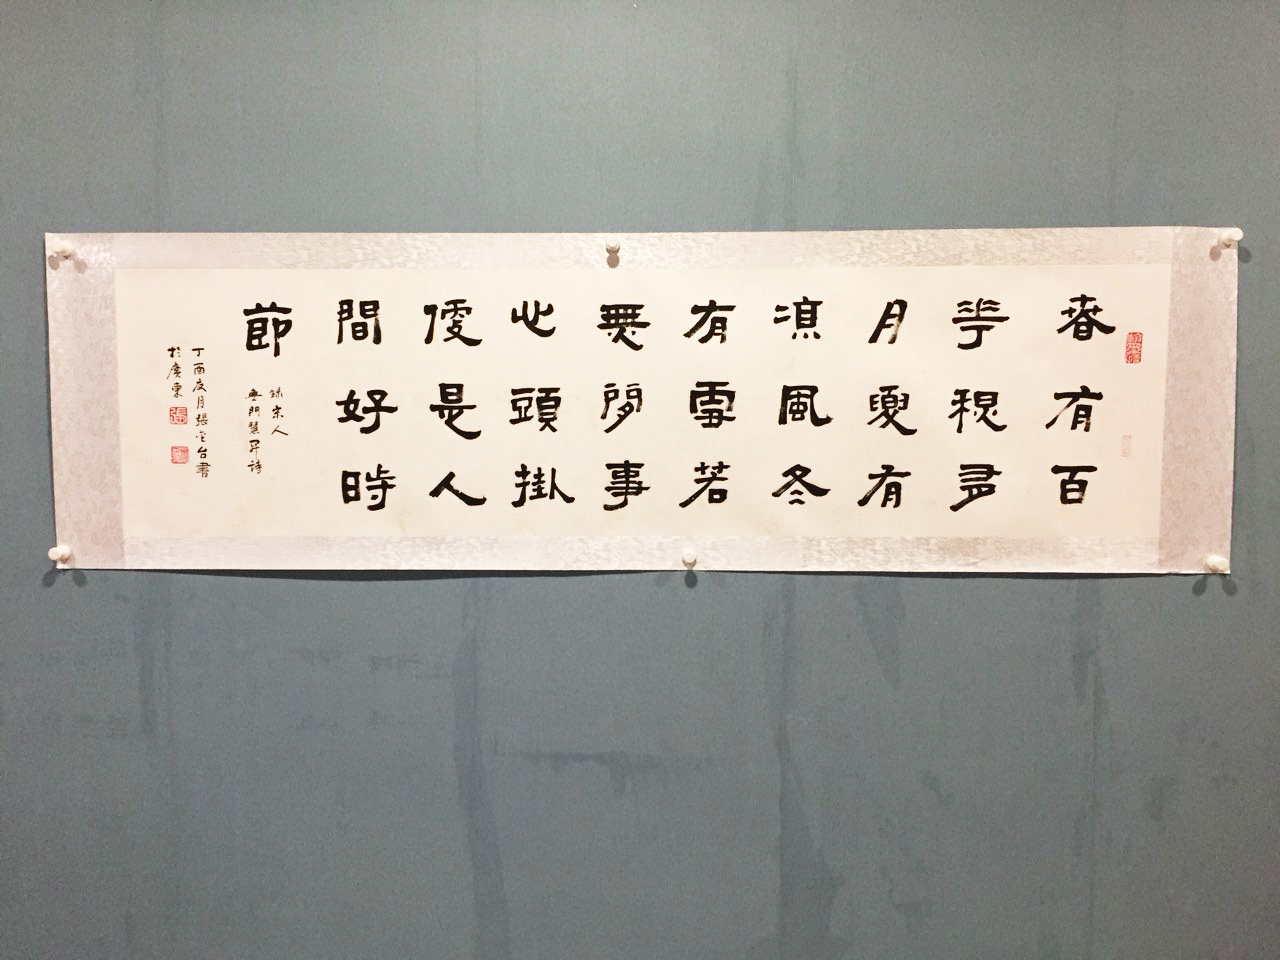 春有百
華秋多
月夏有
凉風冬
有雪若
無閒事
心頭掛
便是人
間好時
節
錄宋人
無門慧开詩
丁酉月張台書
於廣東
張